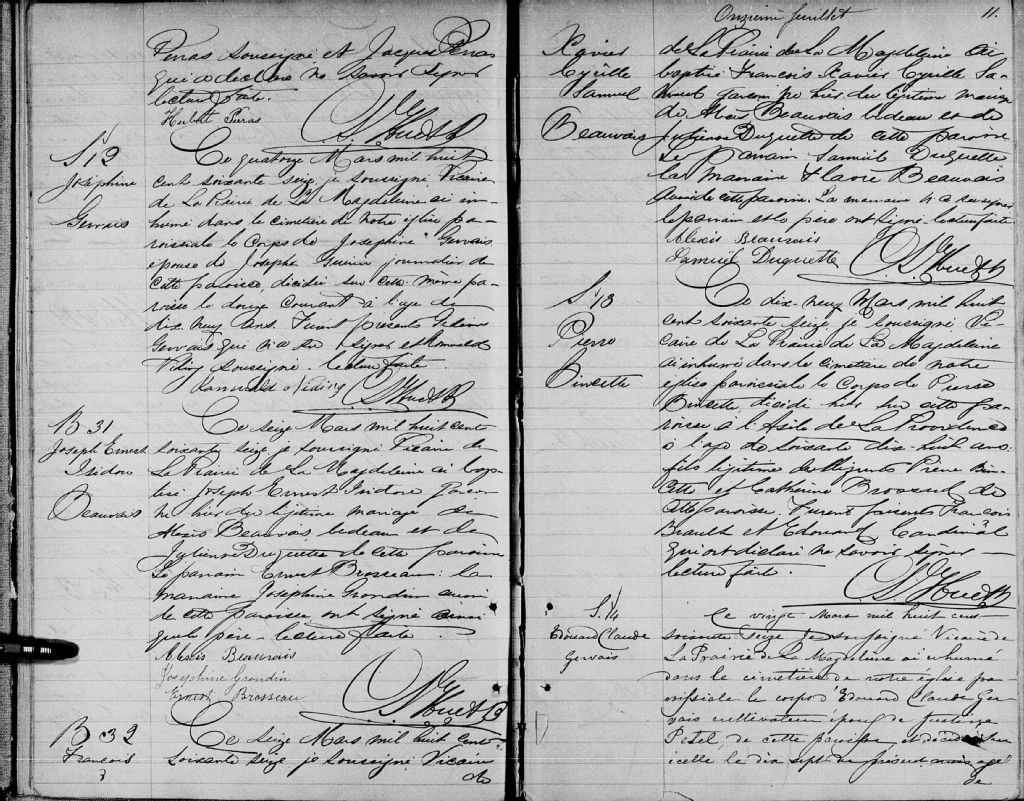 Perras soussigné et Jacques Perras
qui a déclaré ne savoir signer
lecture faite.
Hubert Perras
S 12
Joséphine
Gervais
Ce quatorze Mars mil huit
cent soixante seize, je soussigné Vicaire
de La Prairie de La Magdeleine ai in-
humé dans le cimetière de notre église pa-
roissiale le corps de Josephine Gervais
épouse de Joseph Guérin journalier de
cette paroisse, décédée sur cette même pa-
roisse le douze courant à l'age de
dix neuf ans. Furent présents
Gervais qui n'a su signer et
soussigné. lecture faite.
B 31
Joseph Ernest
Isidore
Beauvais
Ce seize Mars mil huit cent
soixante seize je soussigné Vicaire de
La Prairie de La Magdeleine ai bap-
tisé Joseph Ernest Isidore garçon
né hier du légitime mariage de
Alexis Beauvais bedeau et de
Julienne Duquette de cette paroisse
Le parrain Ernest Brosseau: la
marraine Josephine Grondin aussi
de cette paroisse ont signé ainsi
que le père - lecture faite.
Alexis Beauvais
Josephine Grondin
Ernest Brosseau
B 32
François
Ce seize Mars mil huit cent
soixante seize je soussigné Vicaire
de
Onzième feuillet
11.
Xavier
Cyrille
Samuel
Beauvais
de La Prairie de La Magdeleine ai
baptisé François Xavier Cyrille Sa-
muel garçon né hier du légitime mariage
de Alexis Beauvais bedeau et de
Julienne Duquette de cette paroisse
Le parrain Samuel Duquette
la marraine Flavie Beauvais
aussi de cette paroisse. La marraine n'a su signer
le parrain et le père ont signé. lecture faite
Alexis Beauvais
Samuel Duquette
S 13
Pierre
Bincette
Ce dix-neuf Mars mil huit
cent soixante seize, je soussigné Vi-
caire de La Prairie de La Magdeleine
ai inhumé dans le cimetière de notre
église paroissiale le corps de Pierre
Bincette, décédé hier sur cette pa-
roisse à l'Asile de La Providence
à l'age de soixante dix-huit ans.
fils légitime des défunts Pierre Bin-
cette et Catherine Brossard de
cette paroisse. Furent présents François
Brault et Edouard Cardinal
qui ont déclaré ne savoir signer -
lecture faite.
S. 14
Edouard Claude
Gervais
Le vingt Mars mil huit cent
soixante seize je soussigné Vicaire de
La Prairie de La Magdeleine ai inhumé
dans le cimetière de notre église pa-
roissiale le corps d'Edouard Claude Ger-
vais cultivateur époux de
de cette paroisse et décédé en
icelle le dix sept du présent mois agé
de